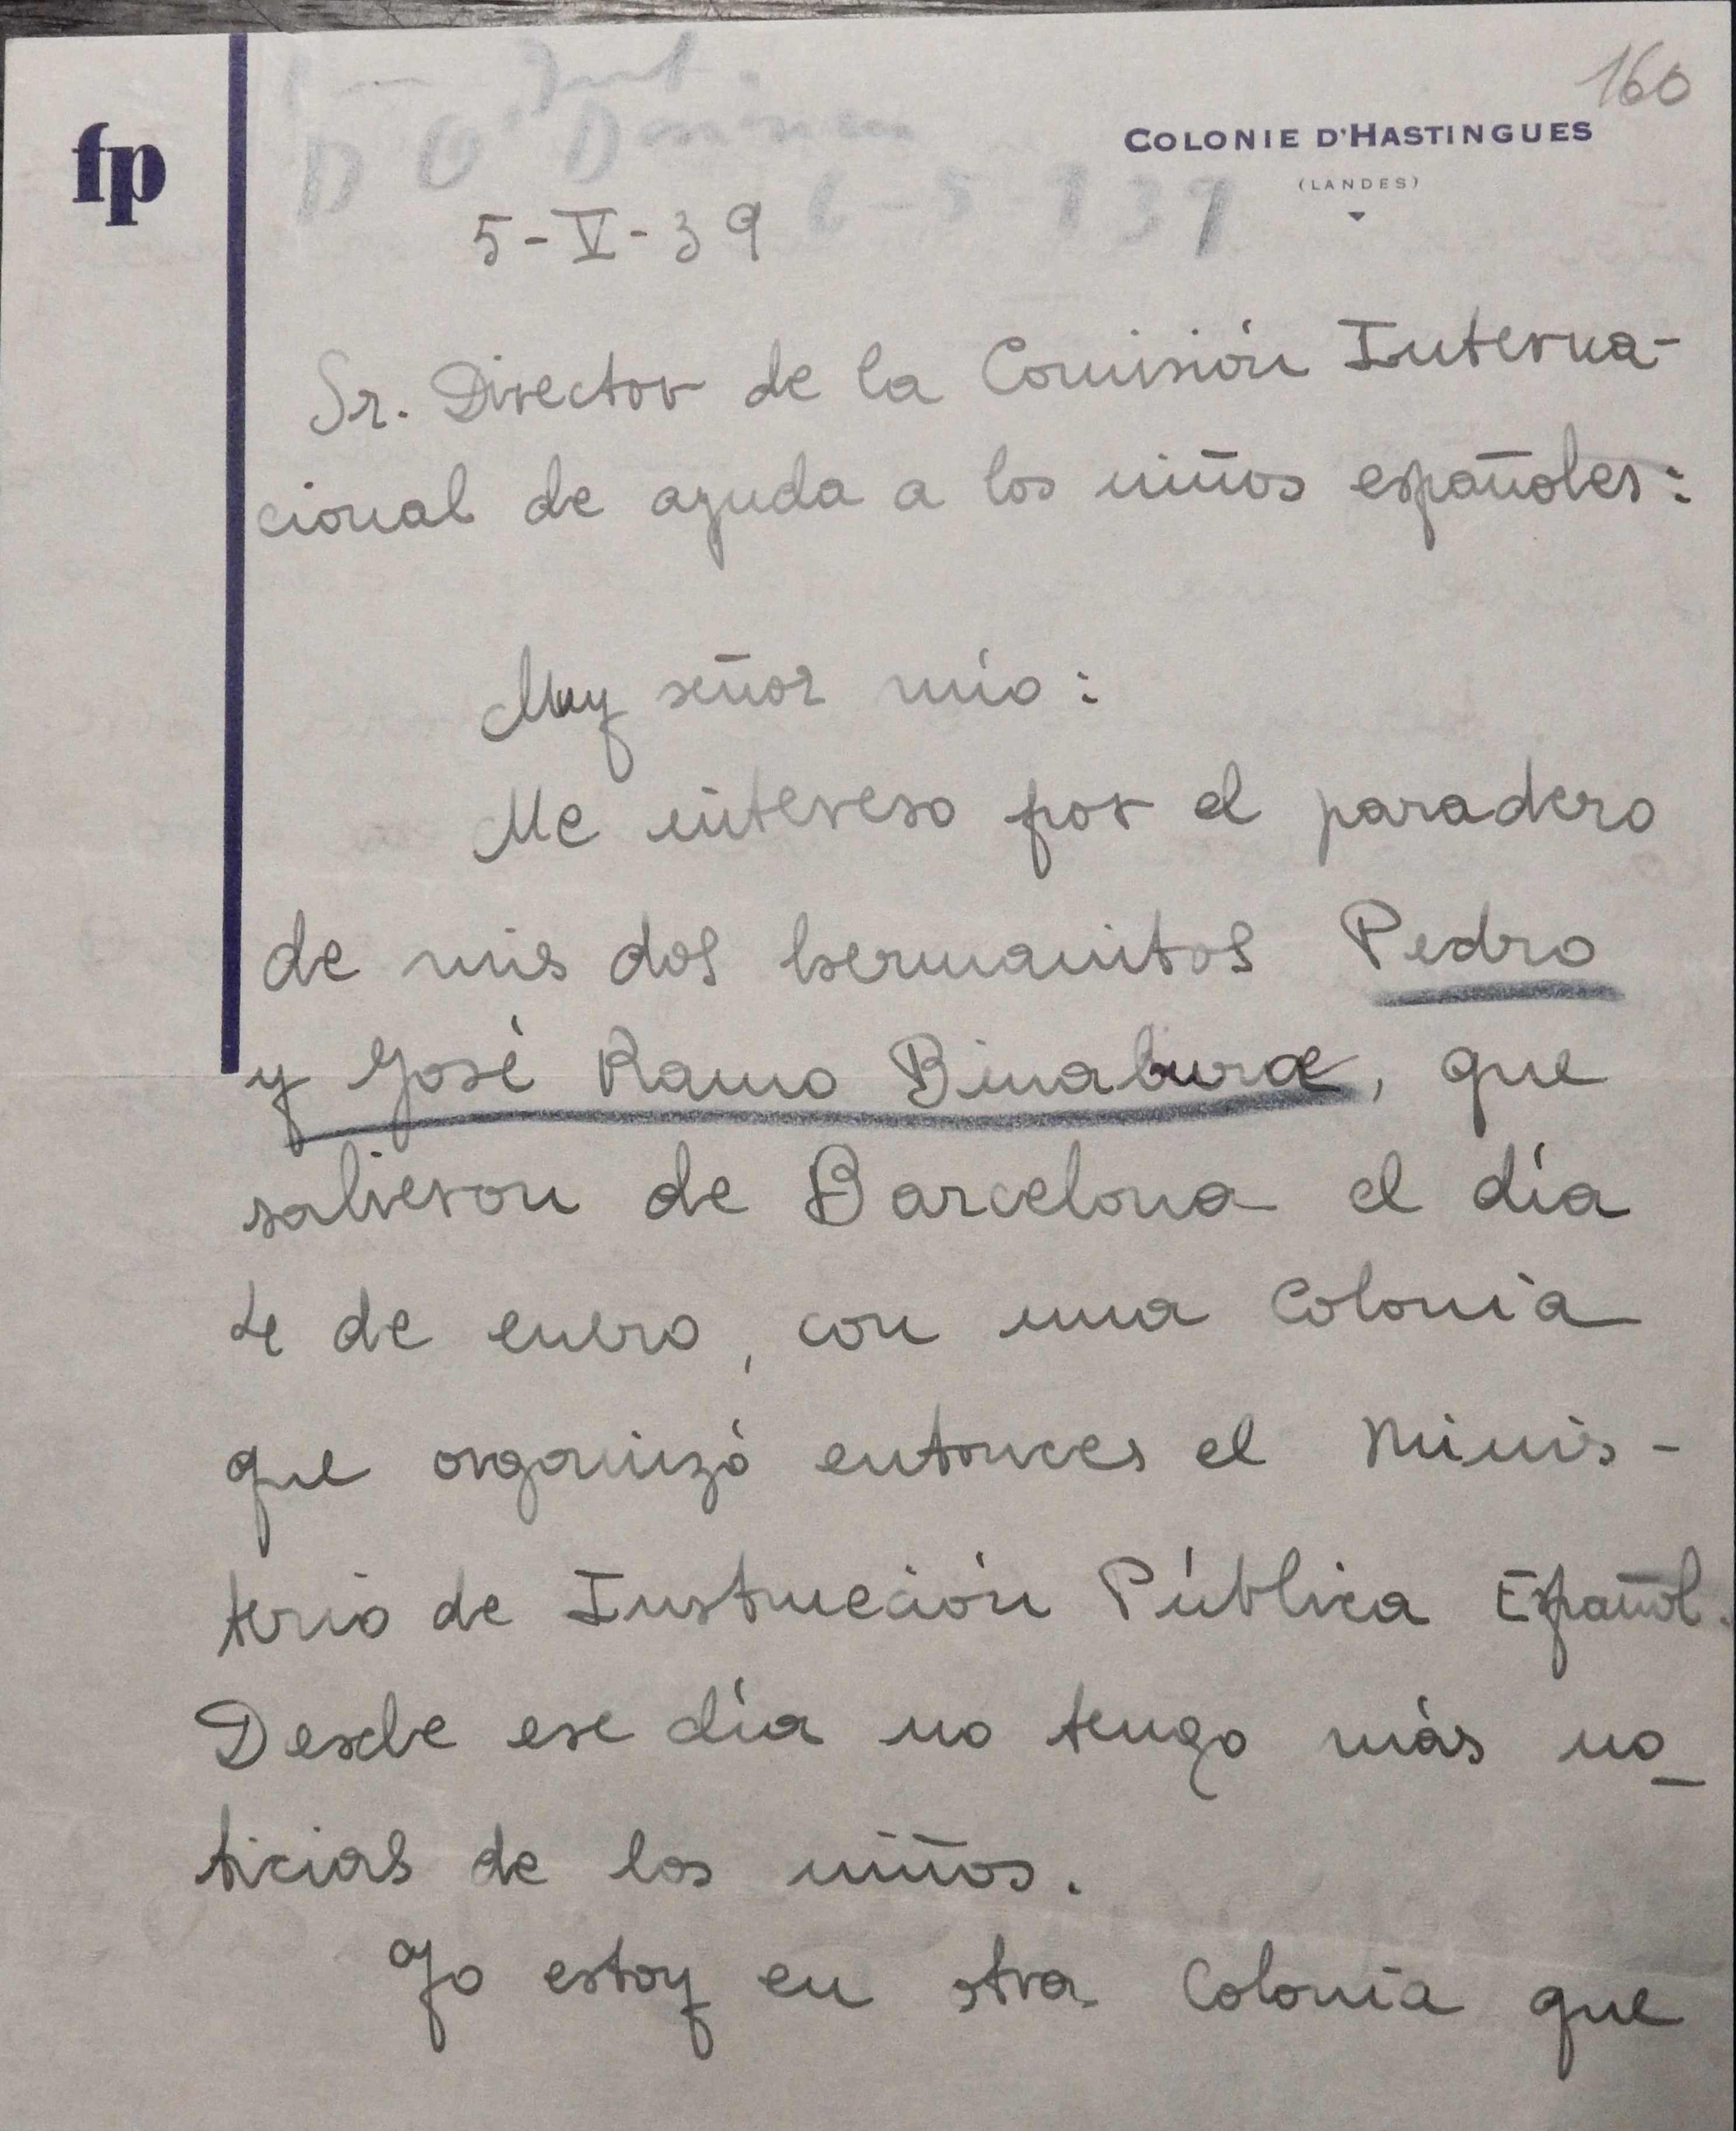 fp
160
COLONIE D'HASTINGUES
(LANDES)
6-5-139
5-V-39
Sr. Director de la Comisión Interna-
cional de ayuda a los niños españoles:
Muy señor mío:
Me intereso por el paradero
de mis dos hermanitos Pedro
y José Ramo Binaburæ, que
salieron de Barcelona el día
4 de enero, con una Colonia
que organizó entonces el Minis-
terio de Instrucción Pública Español.
Desde ese día no tengo más no-
ticias de los niños.
Yo estoy en otra Colonia que